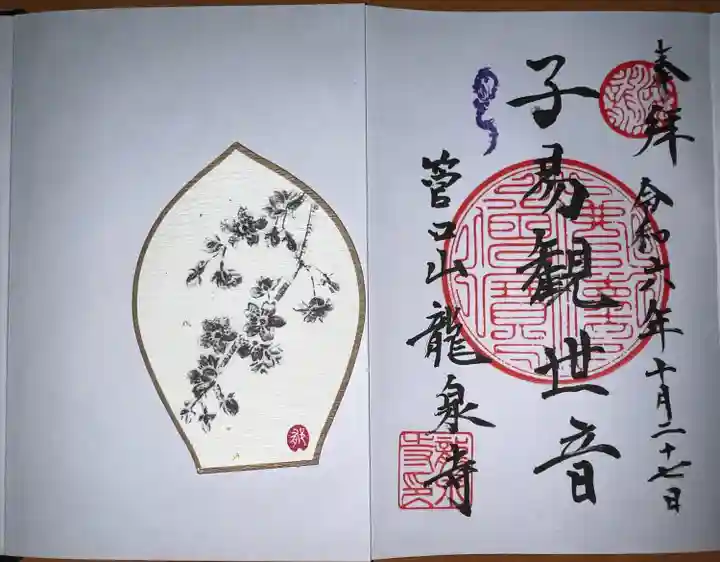 奉拝 令和六年十月二十七日
子易觀世音
菅口山 龍泉寺